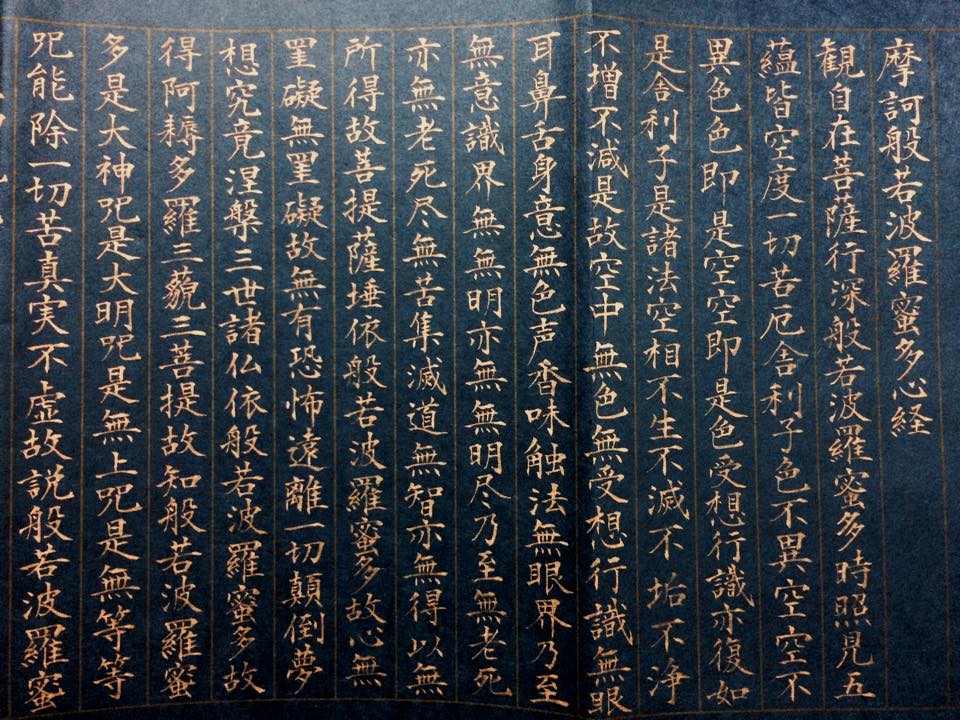 摩訶般若波羅蜜多心経
観自在菩薩行深般若波羅蜜多時照見五
蘊皆空度一切苦厄舎利子色不異空空不
異色色即是空空即是色受想行識亦復如
是舎利子是諸法空相不生不滅不垢不浄
不増不減是故空中無色無受想行識無眼
耳鼻舌身意無色声香味触法無眼界乃至
無意識界無無明亦無無明尽乃至無老死
亦無老死尽無苦集滅道無智亦無得以無
所得故菩提薩埵依般若波羅蜜多故心無
罣礙無罣礙故無有恐怖遠離一切顛倒夢
想究竟涅槃三世諸仏依般若波羅蜜多故
得阿耨多羅三藐三菩提故知般若波羅蜜
多是大神呪是大明呪是無上呪是無等等
呪能除一切苦真実不虚故説般若波羅蜜